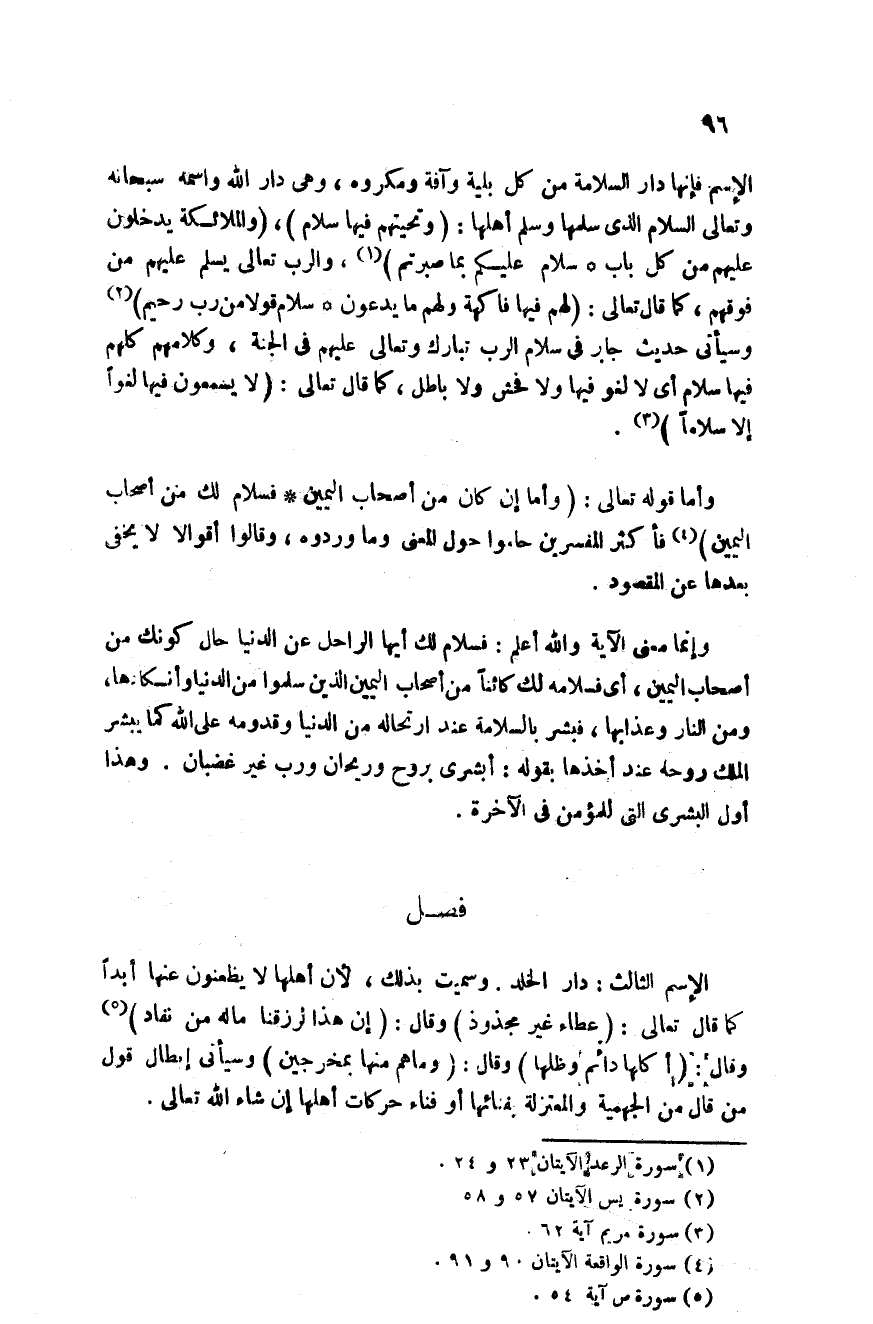 ٩٦
الإسم فإنها دار السلامة من كل بلية وآفة ومكروه ، وهى دار الله واسمه سبحانه
وتعالى السلام الذى سلمها وسلم أهلها : ( وتحيتهم فيها سلام ) ، ( والملائكة يدخلون
عليهم من كل باب * سلام عليكم بما صبرتم )(١) ، والرب تعالى يسلم عليهم من
فوقهم ، كما قال تعالى : ( لهم فيها فاكهة ولهم ما يدعون * سلام قولا من رب رحيم )(٢)
وسيأتى حديث جابر فى سلام الرب تبارك وتعالى عليهم فى الجنة ، وكلامهم كلهم
فيها سلام أى لا لغو فيها ولا فحش ولا باطل ، كما قال تعالى : ( لا يسمعون فيها لغواً
إلا سلاماً )(٣) .
وأما قوله تعالى : ( وأما إن كان من أصحاب اليمين * فسلام لك من أصحاب
اليمين )(٤) فأكثر المفسرين حاموا حول المعنى وما وردوه ، وقالوا أقوالا لا يخفى
بعدها عن المقصود .
وإنما معنى الآية والله أعلم : فسلام لك أيها الراحل عن الدنيا حال كونك من
أصحاب اليمين ، أى فسلامه لك كائناً من أصحاب اليمين الذين سلموا من الدنيا وأنكادها،
ومن النار وعذابها ، فبشر بالسلامة عند ارتحاله من الدنيا وقدومه على الله كما يبشر
الملك روحه عند أخذها بقوله : أبشرى بروح وريحان ورب غير غضبان . وهذا
أول البشرى التى للمؤمن فى الآخرة .
فصــل
الإسم الثالث : دار الخلد . وسميت بذلك ، لأن أهلها لا يظعنون عنها أبداً
كما قال تعالى : ( عطاء غير مجذوذ ) وقال : ( إن هذا لرزقنا ماله من نفاد )(٥)
وقال : ( أكلها دائم وظلها ) وقال : ( وماهم منها بمخرجين ) وسيأتى إبطال قول
من قال من الجهمية والمعتزلة بفنائها أو فناء حركات أهلها إن شاء الله تعالى .
(١) سورة الرعد الآيتان ٢٣ و ٢٤ .
(٢) سورة يس الآيتان ٥٧ و ٥٨
(٣) سورة مريم آية ٦٢ .
(٤) سورة الواقعة الآيتان ٩٠ و ٩١ .
(٥) سورة ص آية ٥٤ .